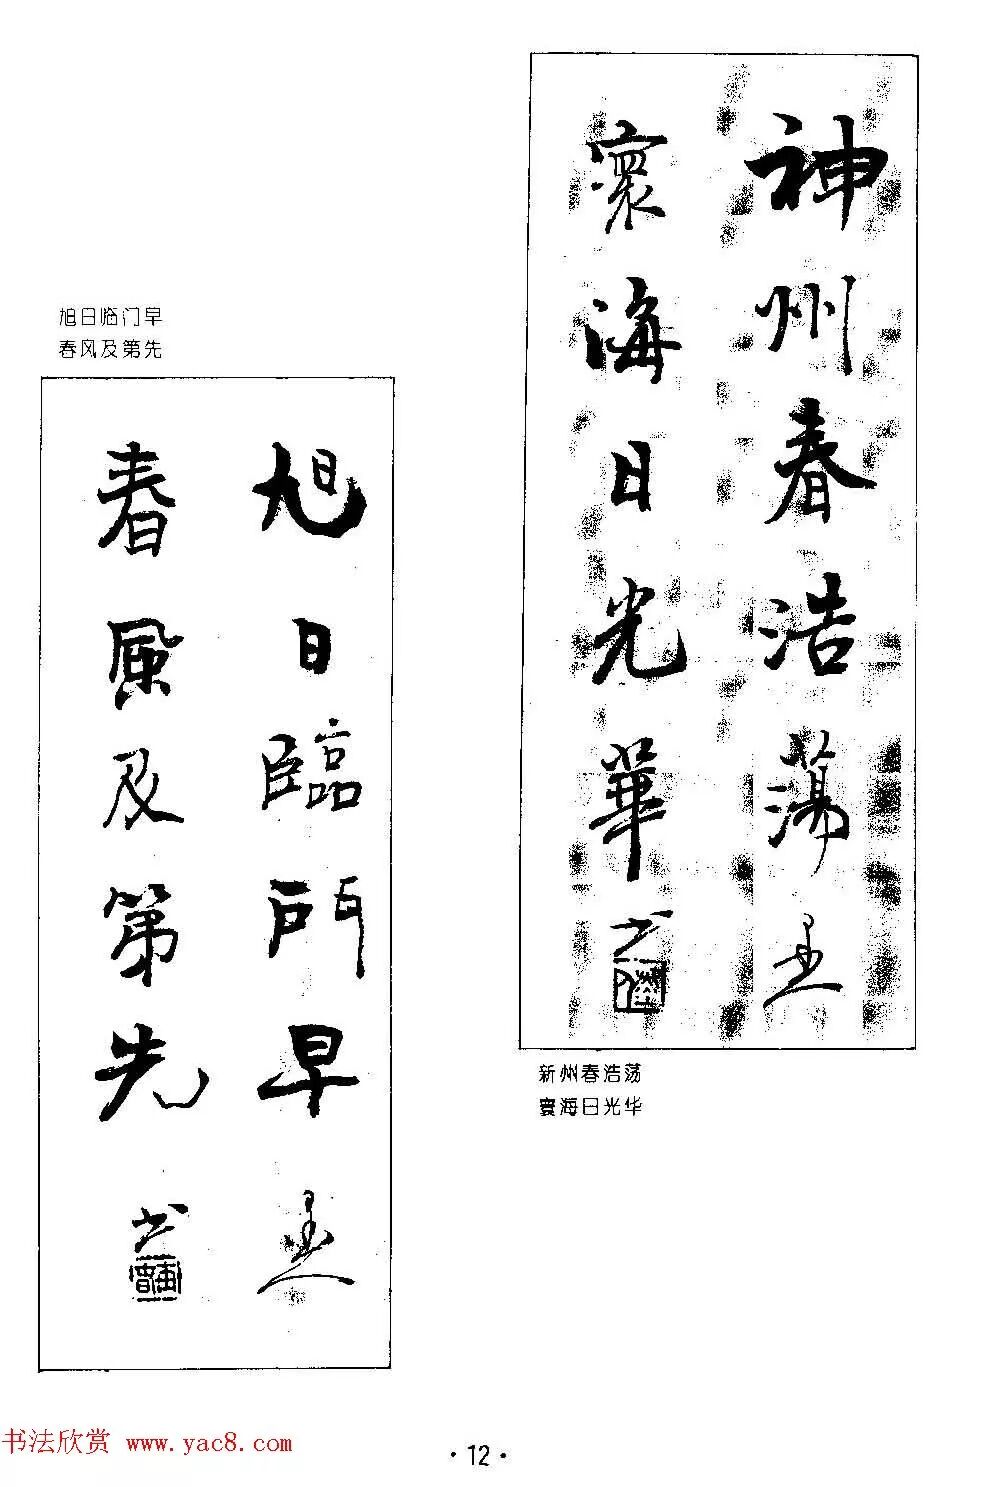 神州春浩蕩
寰海日光華
新州春浩荡
寰海日光华
旭日临门早
春风及第先
旭日臨門早
春風及第先
书法欣赏 www.yac8.com
·12·